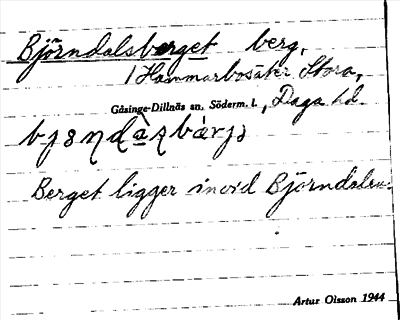 Björndalsberget berg,
/ Hammarbosäter Stora,
Gåsinge-Dillnäs sn. Söderm. l., Daga hd.
Berget ligger invid Björndalen.
Artur Olsson 1944